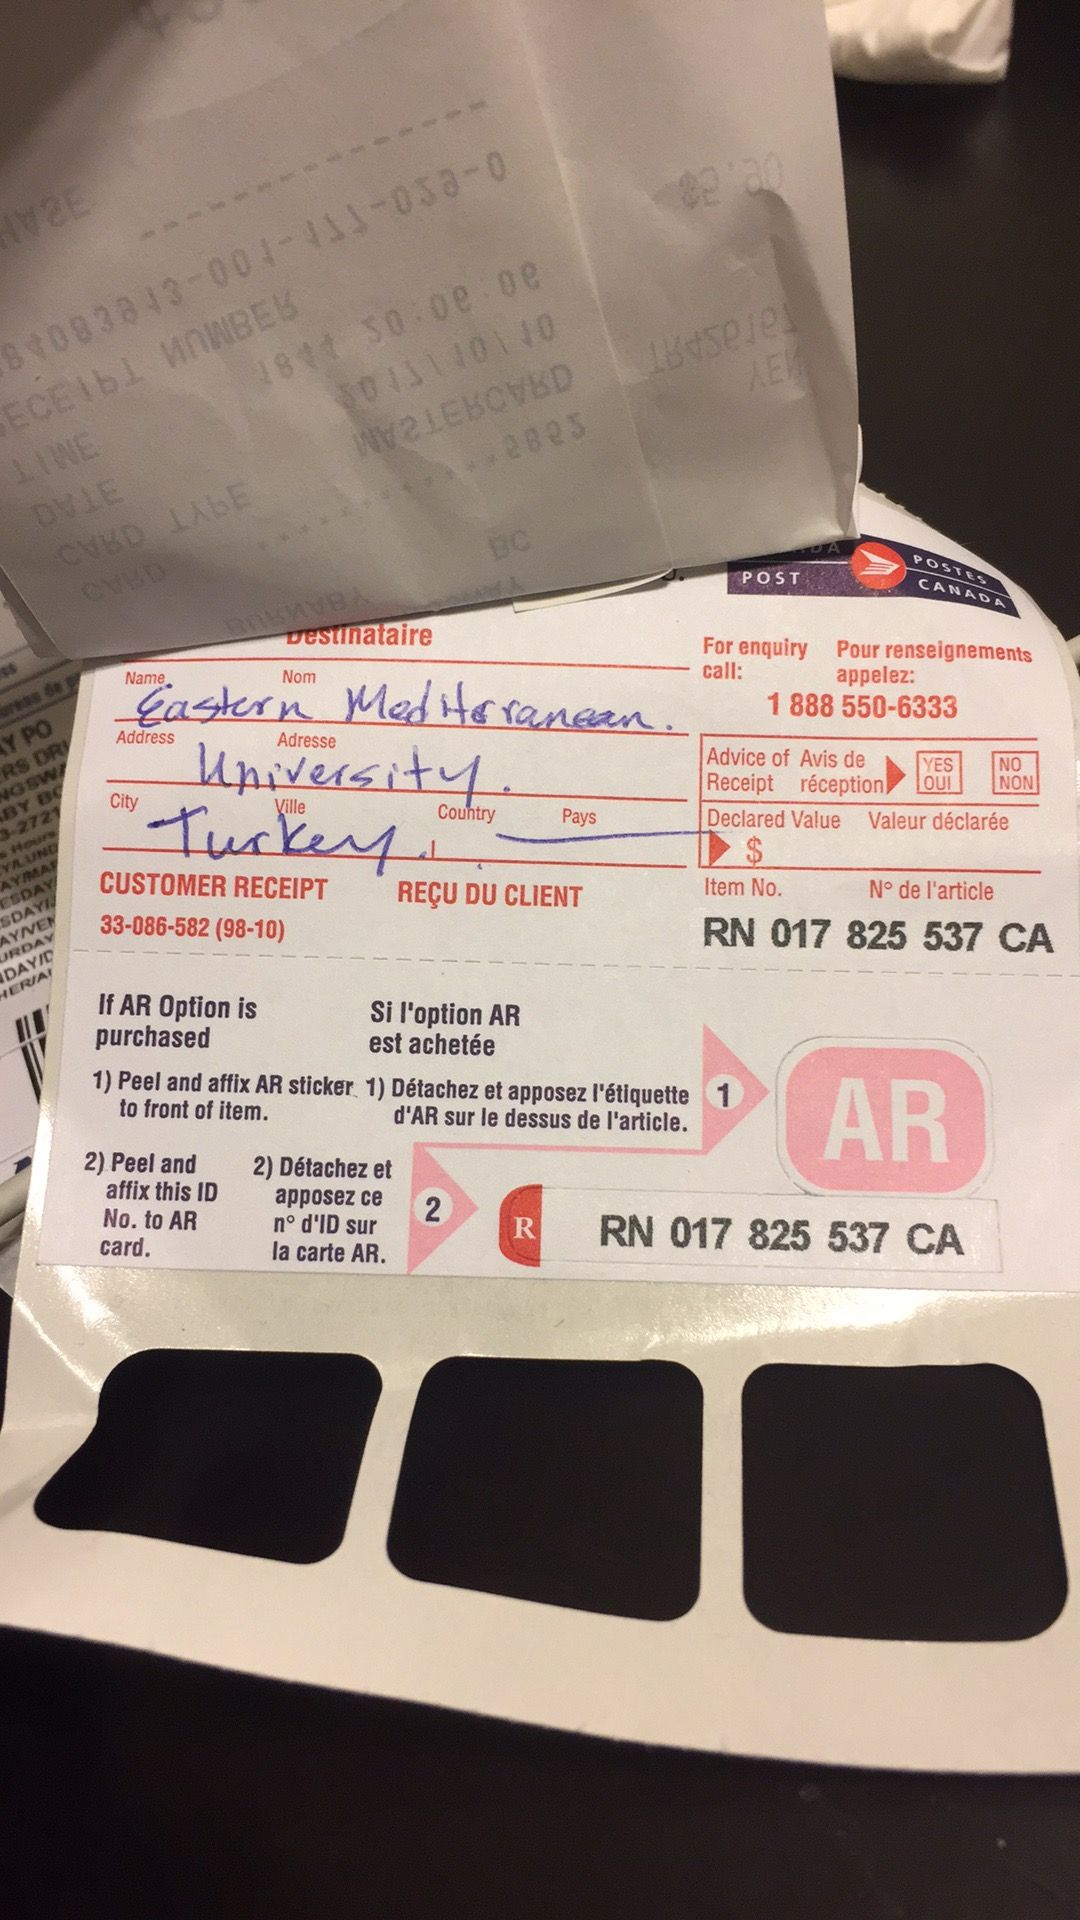 $5.90
84083913-001-177-029-0
RECEIPT NUMBER
TIME 1844 20:06:06
DATE 2017/10/10
CARD TYPE MASTERCARD
5862
TR426167
YEN
BURNABY BC
POST
POSTES
CANADA
Destinataire
Name Nom
Eastern Mediterranean.
Address Adresse
University.
City Ville Country Pays
Turkey.
CUSTOMER RECEIPT REÇU DU CLIENT
33-086-582 (98-10)
For enquiry call: Pour renseignements appelez:
1 888 550-6333
Advice of Receipt Avis de réception YES OUI NO NON
Declared Value Valeur déclarée
$
Item No. N° de l'article
RN 017 825 537 CA
If AR Option is
purchased
Si l'option AR
est achetée
1) Peel and affix AR sticker
to front of item.
1) Détachez et apposez l'étiquette
d'AR sur le dessus de l'article.
1
AR
2) Peel and
affix this ID
No. to AR
card.
2) Détachez et
apposez ce
n° d'ID sur
la carte AR.
2
R RN 017 825 537 CA